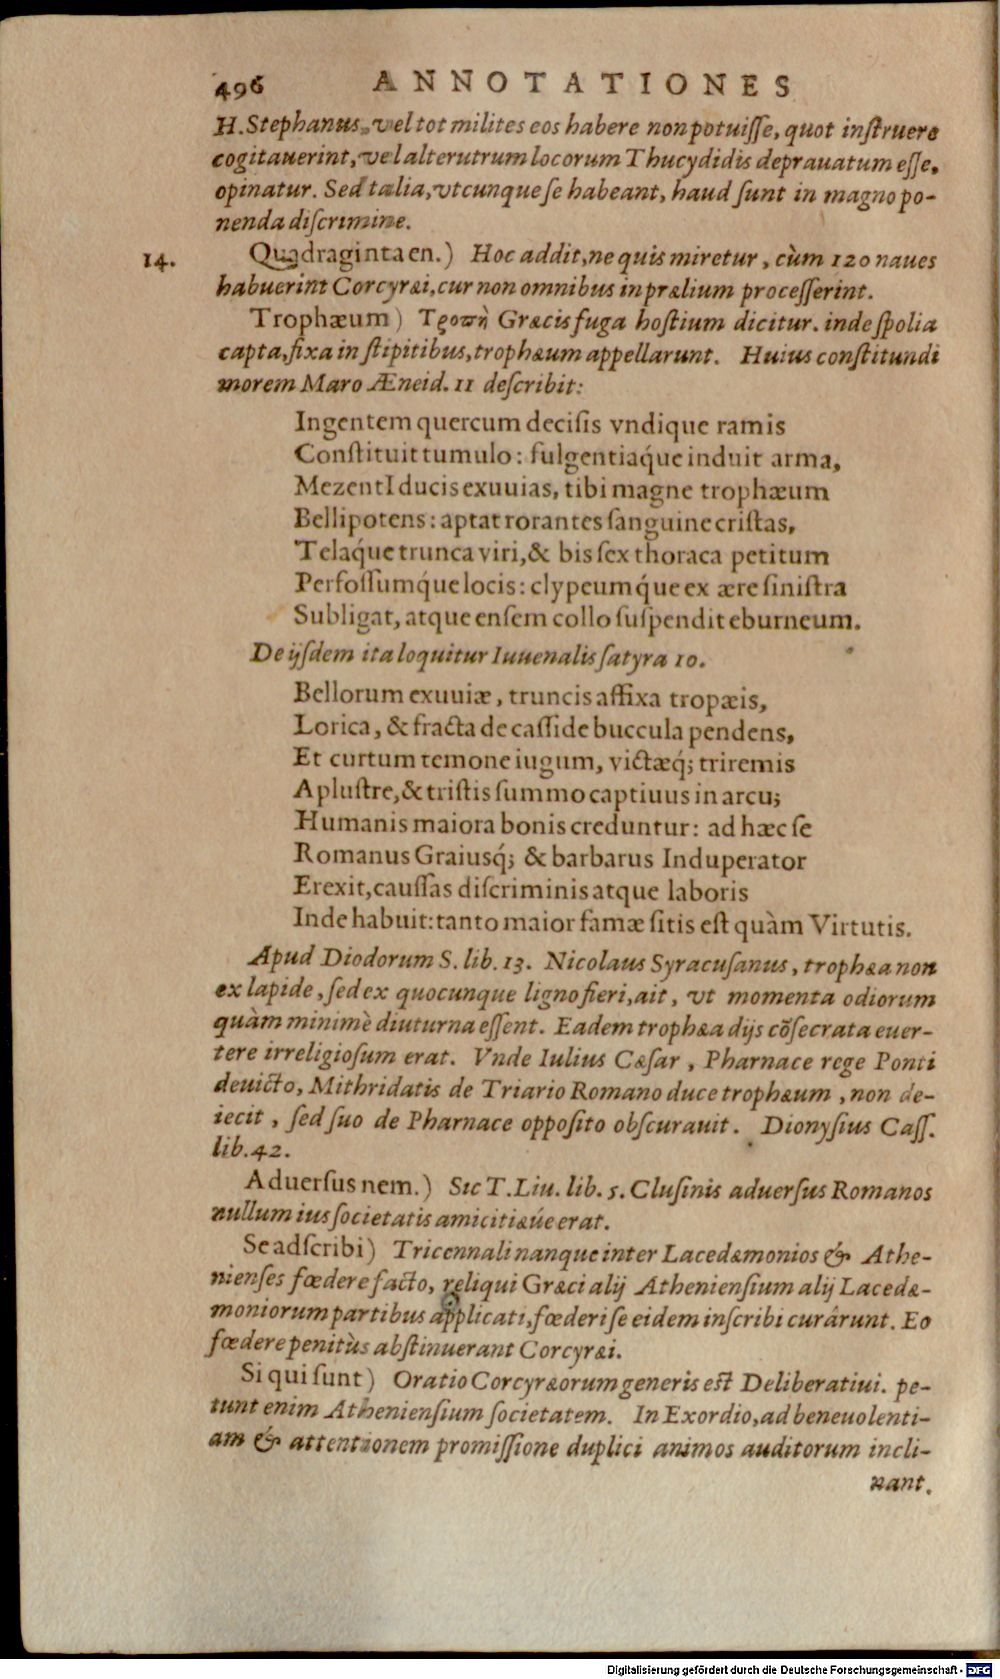 496 ANNOTATIONES
H. Stephanus, vel tot milites eos habere non potuiſſe, quot inſtruere
cogitauerint, vel alterutrum locorum Thucydidis deprauatum eſſe,
opinatur. Sed talia, vtcunque ſe habeant, haud ſunt in magno po-
nenda diſcrimine.
14. Quadraginta en.) Hoc addit, ne quis miretur, cùm 120 naues
habuerint Corcyræi, cur non omnibus in prælium proceſſerint.
Trophæum) Τροπὴ Græcis fuga hoſtium dicitur. inde ſpolia
capta, fixa in ſtipitibus, trophæum appellarunt. Huius conſtitundi
morem Maro Æneid. 11 deſcribit:
Ingentem quercum deciſis vndique ramis
Conſtituit tumulo: fulgentiaq́ue induit arma,
MezentI ducis exuuias, tibi magne trophæum
Bellipotens: aptat rorantes ſanguine criſtas,
Telaq́ue trunca viri, & bis ſex thoraca petitum
Perfoſſumq́ue locis: clypeumq́ue ex ære ſiniſtra
Subligat, atque enſem collo ſuſpendit eburneum.
De ijſdem ita loquitur Iuuenalis ſatyra 10.
Bellorum exuuiæ, truncis affixa tropæis,
Lorica, & fracta de caſſide buccula pendens,
Et curtum temone iugum, victæq́; triremis
Apluſtre, & triſtis ſummo captiuus in arcu;
Humanis maiora bonis creduntur: ad hæc ſe
Romanus Graiusq́; & barbarus Induperator
Erexit, cauſſas diſcriminis atque laboris
Inde habuit: tanto maior famæ ſitis eſt quàm Virtutis.
Apud Diodorum S. lib. 13. Nicolaus Syracuſanus, trophæa non
ex lapide, ſed ex quocunque ligno fieri, ait, vt momenta odiorum
quàm minimè diuturna eſſent. Eadem trophæa dijs cõſecrata euer-
tere irreligioſum erat. Vnde Iulius Cæſar, Pharnace rege Ponti
deuicto, Mithridatis de Triario Romano duce trophæum, non de-
iecit, ſed ſuo de Pharnace oppoſito obſcurauit. Dionyſius Caſſ.
lib. 42.
Aduerſus nem.) Sic T. Liu. lib. 5. Cluſinis aduerſus Romanos
nullum ius ſocietatis amicitiæúe erat.
Se adſcribi) Tricennali nanque inter Lacedæmonios & Athe-
nienſes fœdere facto, reliqui Græci alij Athenienſium alij Lacedæ-
moniorum partibus applicati, fœderi ſe eidem inſcribi curârunt. Eo
fœdere penitùs abſtinuerant Corcyræi.
Si qui ſunt) Oratio Corcyræorum generis eſt Deliberatiui. pe-
tunt enim Athenienſium ſocietatem. In Exordio, ad beneuolenti-
am & attentionem promiſſione duplici animos auditorum incli-
nant.
Digitalisierung gefördert durch die Deutsche Forschungsgemeinschaft - DFG